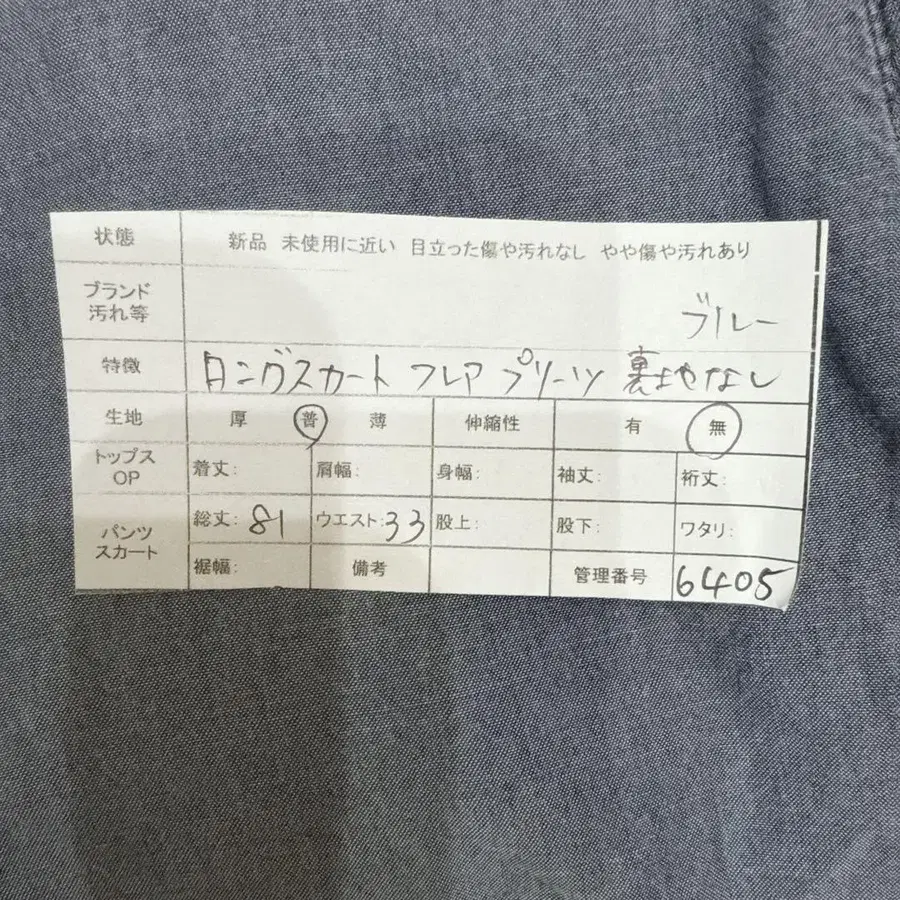 状態 新品 未使用に近い 目立った傷や汚れなし やや傷や汚れあり
ブランド
汚れ等 ブルー
特徴 ロングスカート フレア プリーツ 裏地なし
生地 厚 普 薄 伸縮性 有 無
トップス
OP 着丈: 肩幅: 身幅: 袖丈: 裄丈:
パンツ
スカート 総丈: 81 ウエスト: 33 股上: 股下: ワタリ:
裾幅: 備考 管理番号 6405